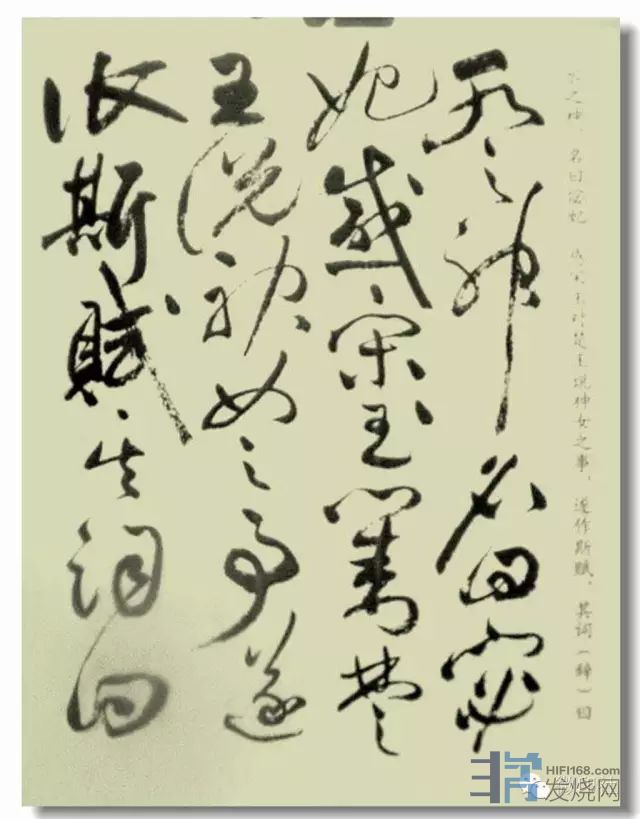 水之神，名曰宓妃 感宋玉对楚王说神女之事，遂作斯赋，其词（辞）曰
水之神名曰宓
妃感宋玉對楚
王說神女之事遂
作斯賦其詞曰
HIFI168.com
发烧网